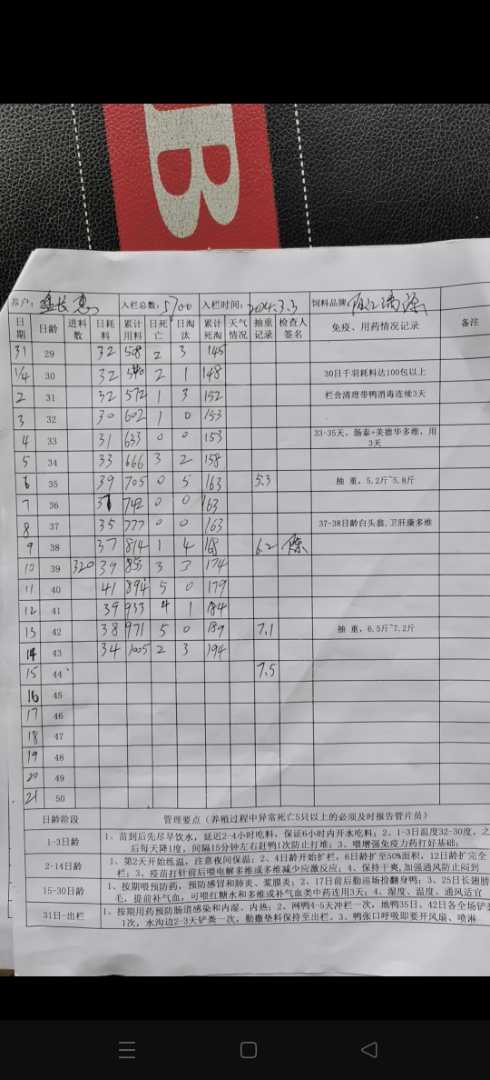 JB
养户: 长 入栏总数: 5700 入栏时间: 2024.3.3 饲料品牌:
日期 日龄 进料数 日耗料 累计用料 日死亡 日淘汰 累计死淘 天气情况 抽重记录 检查人签名 免疫、用药情况记录 备注
31 29 32 508 2 3 145
1/4 30 32 540 2 1 148 30日千羽耗料达100包以上
2 31 32 572 1 3 152 栏舍清理带鸭消毒连续3天
3 32 30 602 1 0 153
4 33 31 633 0 0 153 33-35天，肠泰+美德华多维，用3天
5 34 33 666 3 2 158
6 35 39 705 0 5 163 5.3 抽 重，5.2斤~5.8斤
7 36 37 742 0 0 163
8 37 35 777 0 0 163 37-38日龄白头翁,卫肝康多维
9 38 37 814 1 4 168 6.2
10 39 320 39 853 3 3 174
11 40 41 894 5 0 179
12 41 39 933 4 1 184
13 42 38 971 5 0 189 7.1 抽 重，6.5斤~7.2斤
14 43 34 1005 2 3 194
15 44 7.5
16 45
17 46
18 47
19 48
20 49
21 50
日龄阶段 管理要点（养殖过程中异常死亡5只以上的必须及时报告管片员）
1-3日龄 1、苗到后先尽早饮水，延迟2-4小时吃料，保证6小时内开水吃料；2、1-3日温度32-30度，之
后每天降1度，间隔15分钟左右赶鸭1次防止打堆；3、喂增强免疫力药打好基础；
2-14日龄 1、第2天开始练温，注意夜间保温；2、4日龄开始扩栏，6日龄扩至50%面积，12日龄扩完全
栏；3、疫苗打针前后喂电解多维或多维减少应激反应；4、保持干爽,加强通风防止闷到
15-30日龄 1、按期喂预防药，预防感冒和肺炎、浆膜炎；2、17日前后勤巡场捡翻身鸭；3、25日长翅膀
毛，提前补气血，可喂红糖水和多维或补气血类中药连用3天；4、湿度、温度、通风适宜
31日-出栏 1、按期用药预防肠道感染和内湿、内热；2、网鸭4-5天冲栏一次，地鸭35日、42日各全场铲
1次，水沟边2-3天铲粪一次，勤撒垫料保持至出栏。3、鸭张口呼吸即要开风扇、喷淋